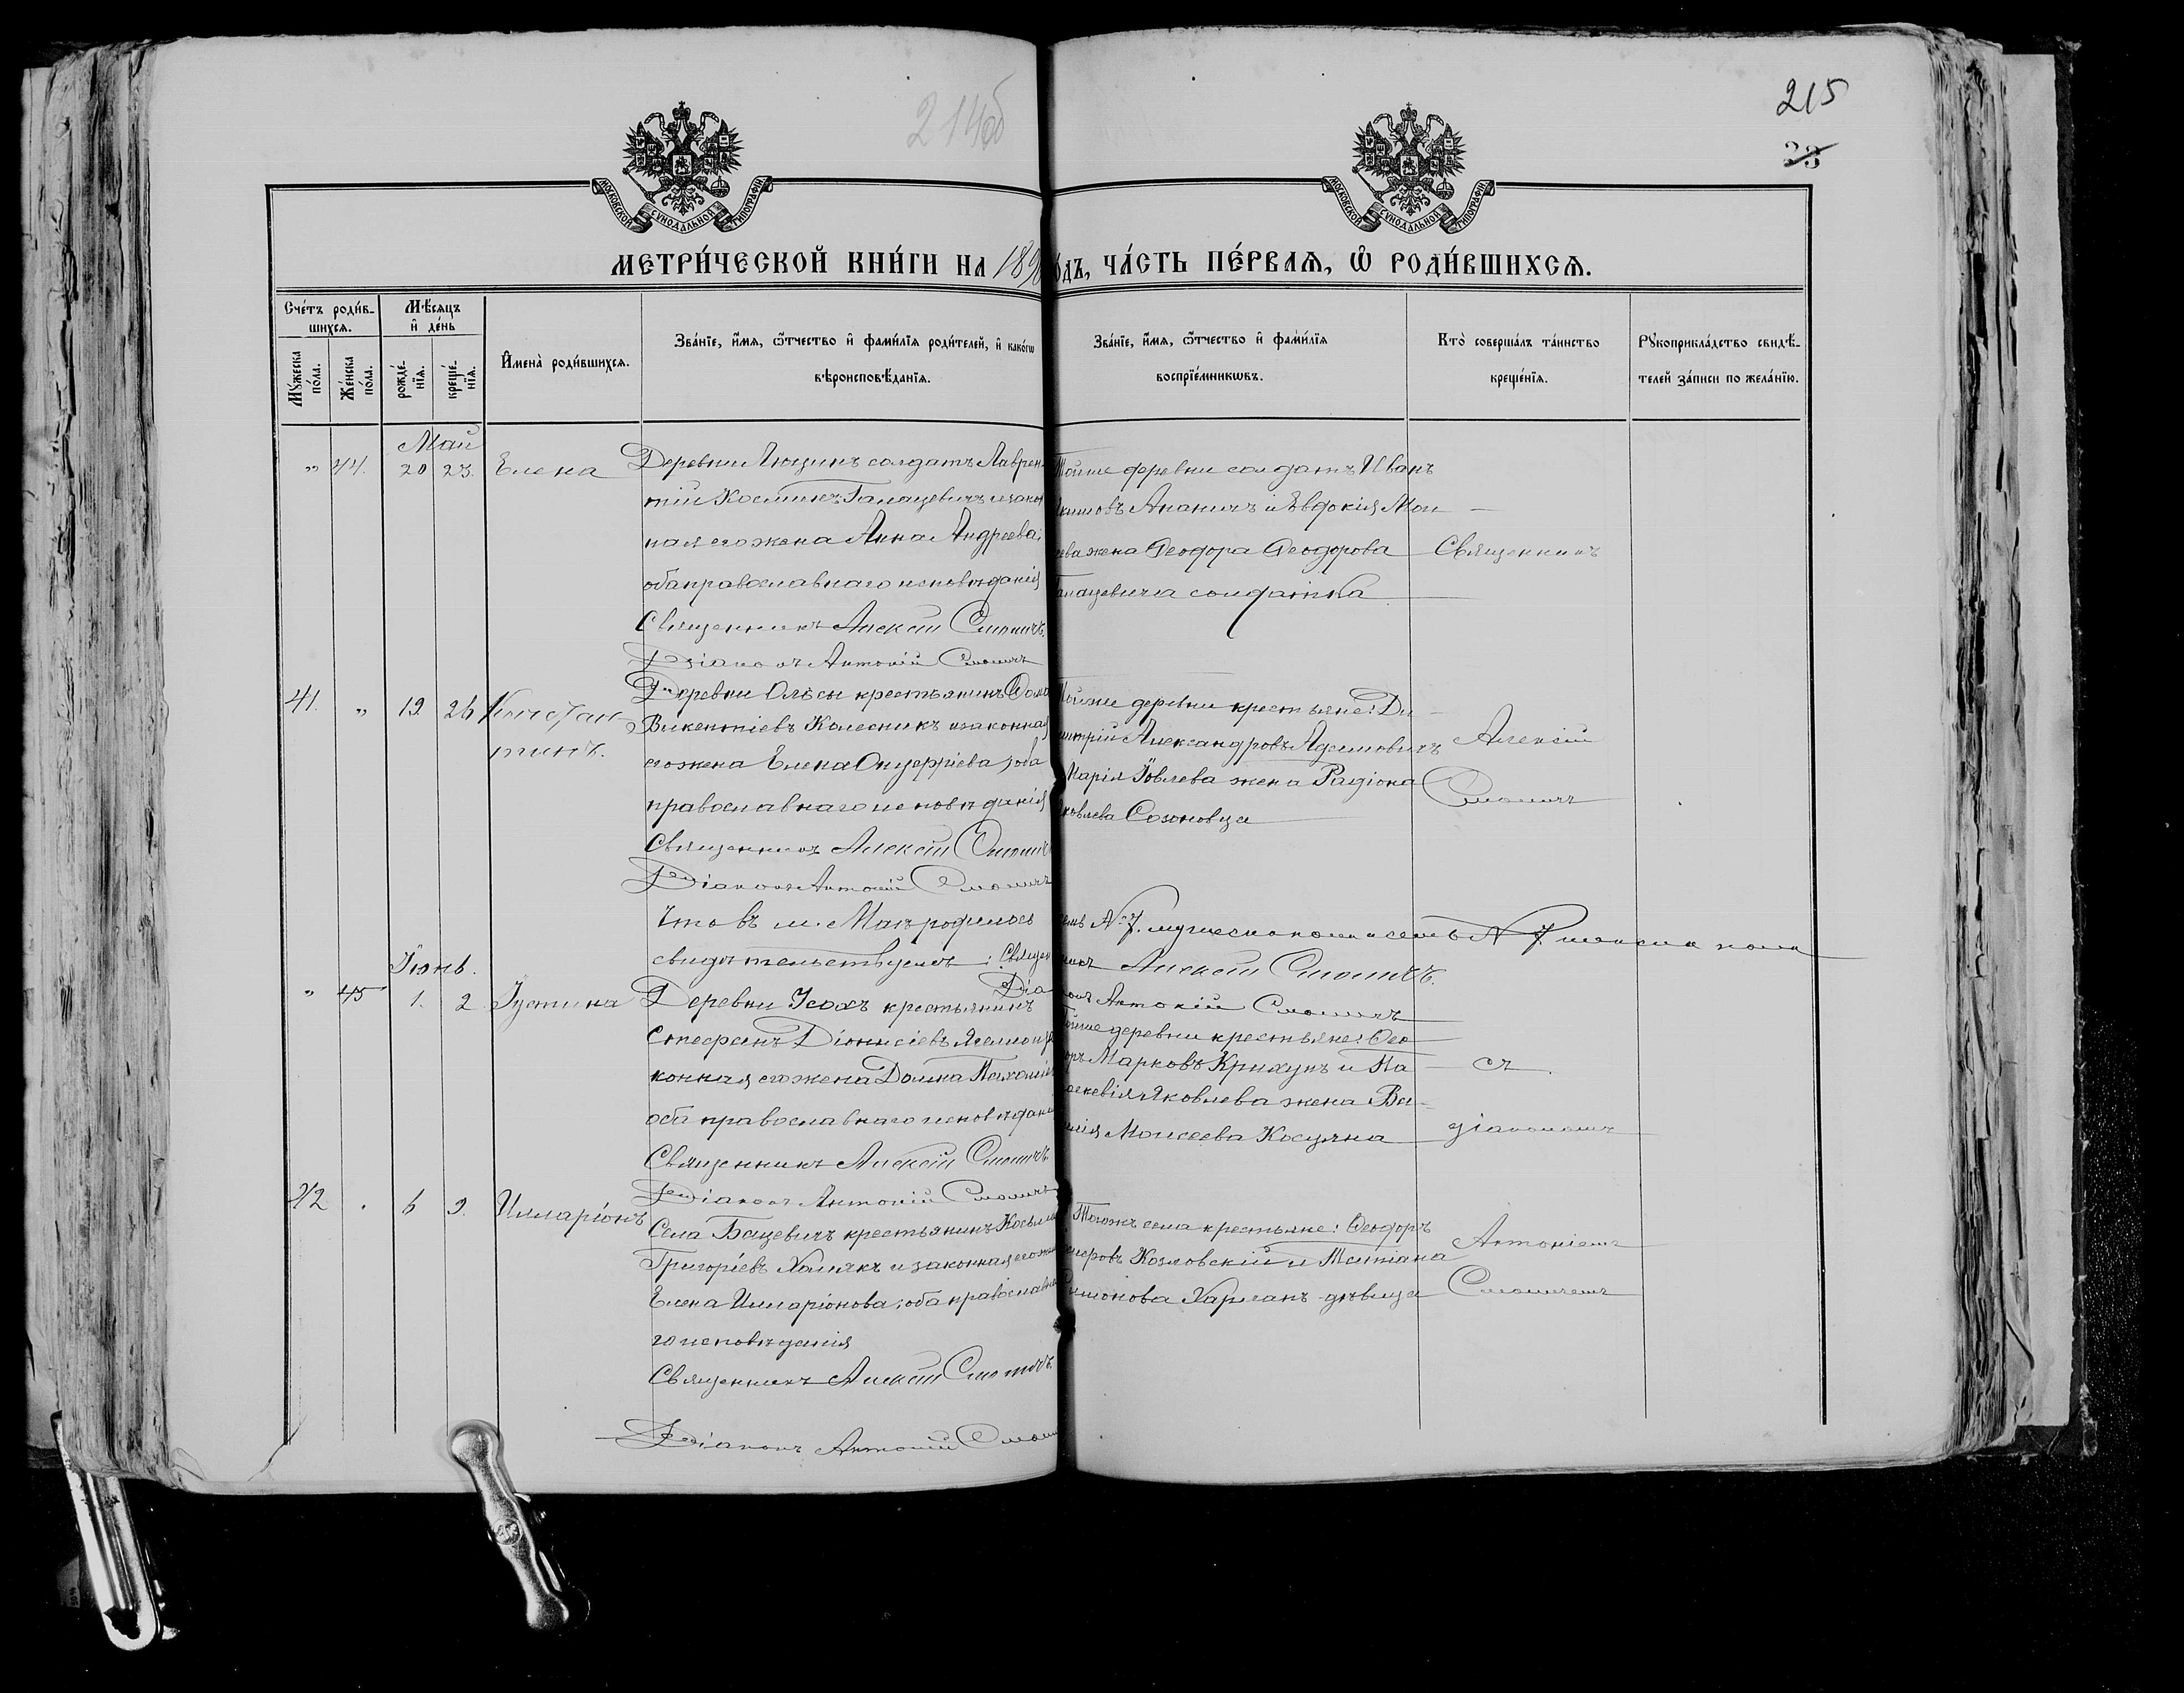 214об
215
23
МОСКОВСКОЙ СѴНОДАЛЬНОЙ ТИПОГРАФІИ
МОСКОВСКОЙ СѴНОДАЛЬНОЙ ТИПОГРАФІИ
МЕТРИ́ЧЕСКОЙ КНИ́ГИ НА 189 ОДЪ, ЧА́СТЬ ПЕ́РВАѦ, Ѡ҆ РОДИ́ВШИХСѦ.
Сче́тъ роди́в-
шихсѧ.
Мꙋ́жеска по́ла.
Же́нска по́ла.
Мѣ́сѧцъ
и҆ де́нь
рожде́-нїѧ.
креще́-нїѧ.
И҆мена̀ роди́вшихсѧ.
Зва́нїе, и҆́мѧ, ѻ҆́тчество и҆ фами́лїѧ роди́телей, и҆ како́гѡ
вѣроисповѣ́данїѧ.
Зва́нїе, и҆́мѧ, ѻ҆́тчество и҆ фами́лїѧ
воспрїе́мникѡвъ.
Кто̀ соверша́лъ та́инство
креще́нїѧ.
Рꙋкоприкла́дство свидѣ́-
телей за́писи по жела́нїю.
Май
„ 44. 20 23. Елена
Деревни Люцинъ солдатъ Лаврен
тій Косминъ Галацевичъ и закон
ная его жена Анна Андреева;
оба православнаго исповѣданія
Священникъ Алексій Смоличъ.
Діаконъ Антоній Смоличъ
Тойже деревни солдатъ Иванъ
Ананичъ и Евдокія Мои
жена Ѳеодора Ѳеодорова
Галацевича солдатка
Священникъ
41. „ 19. 26 Констан
тинъ.
Деревни Ольсы крестьянинъ
Викентіевъ Колесникъ и законная
его жена Елена Онуфріева, оба
православнаго исповѣданія
Священникъ Алексій Смоличъ
Діаконъ Антоній Смоличъ
Тойже деревни крестьяне: Ди
митрій Александровъ Адамовичъ
Марія Іовлева жена Радіона
Яковлева Созоновца
Алексій
Смоличъ
Что въ м. Маѣ родилось
свидѣтельствуемъ: Священ
семь № 7. мужеска пола и семь № 7. женска пола
никъ Алексій Смоличъ.
Діа
конъ Антоній Смоличъ
Іюнь.
„ 45 1. 2 Іустина
Деревни Усохъ крестьянинъ
Стефанъ Діонисіевъ
конная его жена Домна Пахоміе
оба православнаго исповѣдані
Священникъ Алексій Смоличъ.
Діаконъ Антоній Смоличъ
Тойже деревни крестьяне: Ѳео
доръ Марковъ Крихунъ и Па
раскевія Яковлева жена Ва
силія Моисеева Косуяна
съ
діакономъ
42 . 6 9. Илларіонъ
Села Бацевичъ крестьянинъ Косьма
Григоріевъ Холякъ и законная его жена
Елена Илларіонова; оба православна
го исповѣданія
Священникъ Алексій Смоличъ.
Діаконъ Антоній Смоли
Тогожъ села крестьяне: Ѳеодоръ
Козловскій и Татіана
Симонова Харланъ дѣвица
Антоніемъ
Смоличемъ